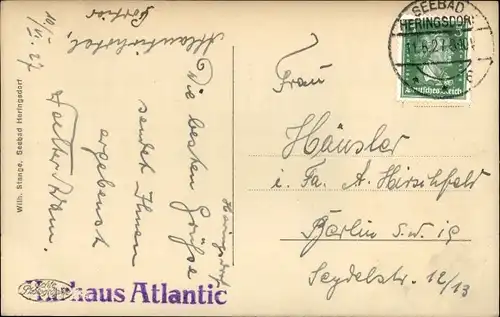 10/V. 27
Atlantichotel,
Portier
Heringsdorf
Die besten Grüße
sendet Ihnen
ergebenst
Walter Adam.
SEEBAD
HERINGSDORF
Deutsches Reich
Frau
Häusler
i. Fa. A. Hirschfeld
Berlin S.W. 19
Seydelstr. 12/13
Wilh. Stange, Seebad Heringsdorf
Kurhaus Atlantic